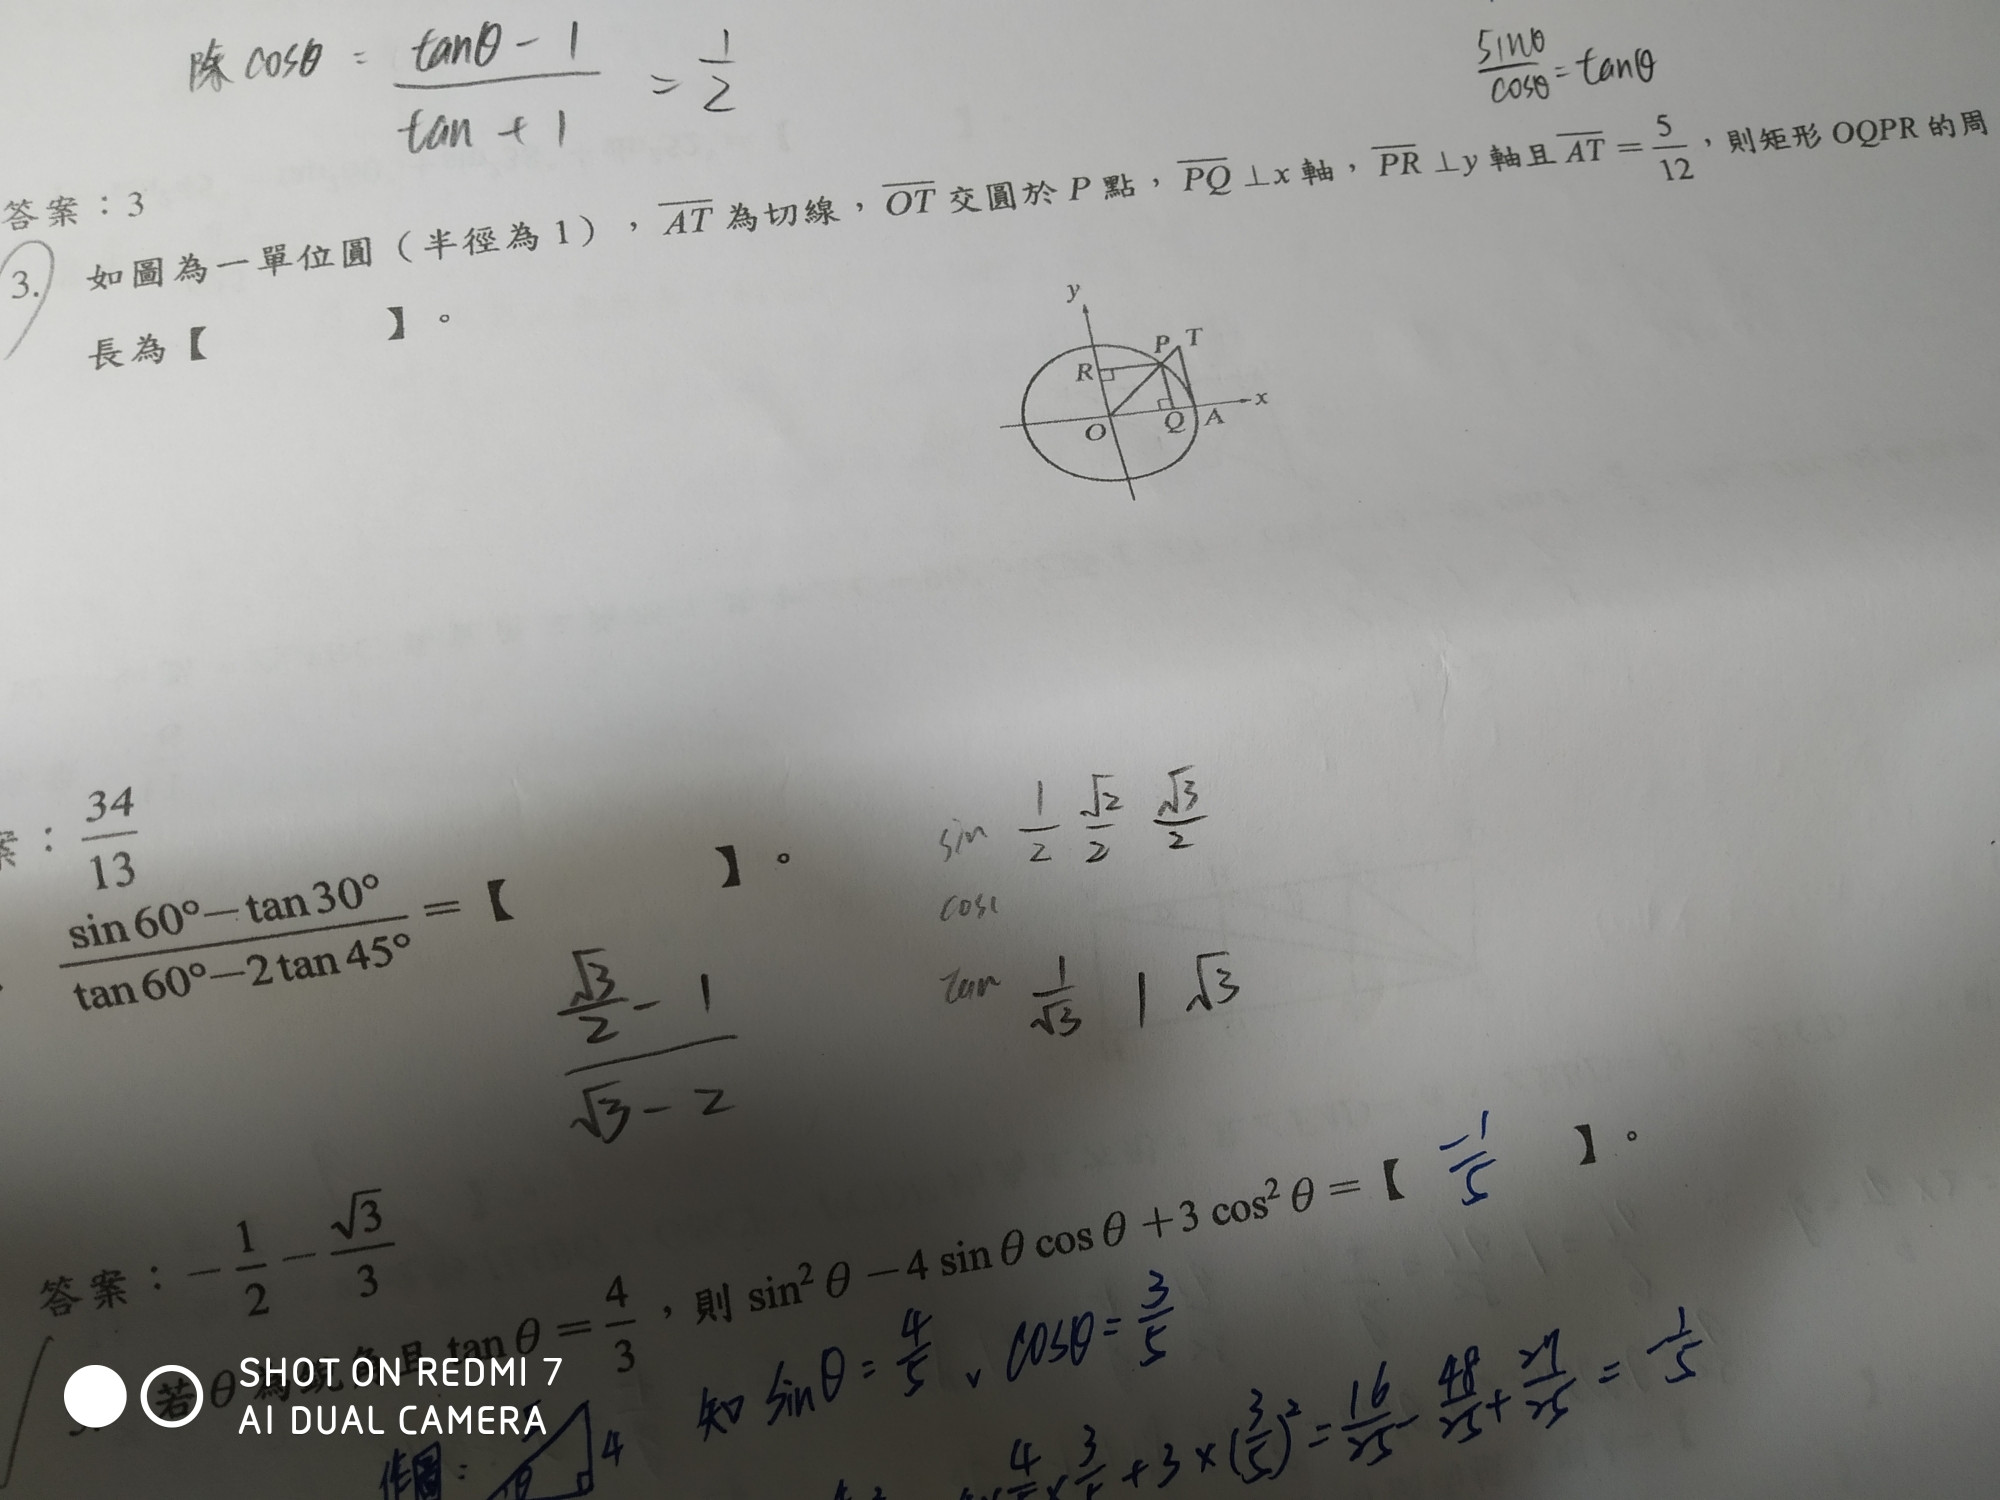 除 cosθ = (tanθ - 1)/(tan + 1) = 1/2
sinθ/cosθ = tanθ
答案：3
3. 如圖為一單位圓（半徑為1），AT 為切線，OT 交圓於 P 點，PQ ⊥ x 軸，PR ⊥ y 軸且 AT = 5/12，則矩形 OQPR 的周
長為【 】。
y
P T
R
x
O Q A
案：34/13
(sin 60° − tan 30°)/(tan 60° − 2 tan 45°) = 【 】。
sin 1/2 √2/2 √3/2
cos
tan 1/√3 1 √3
(√3/2 - 1)/(√3 - 2)
答案：− 1/2 − √3/3
若 θ 為銳角且 tan θ = 4/3，則 sin² θ − 4 sin θ cos θ + 3 cos² θ = 【 -1/5 】。
知 sinθ = 4/5、cosθ = 3/5
作圖： 5 4 θ
4/5 × 3/5 + 3 × (3/5)² = 16/25 - 48/25 + 27/25 = -1/5
SHOT ON REDMI 7
AI DUAL CAMERA